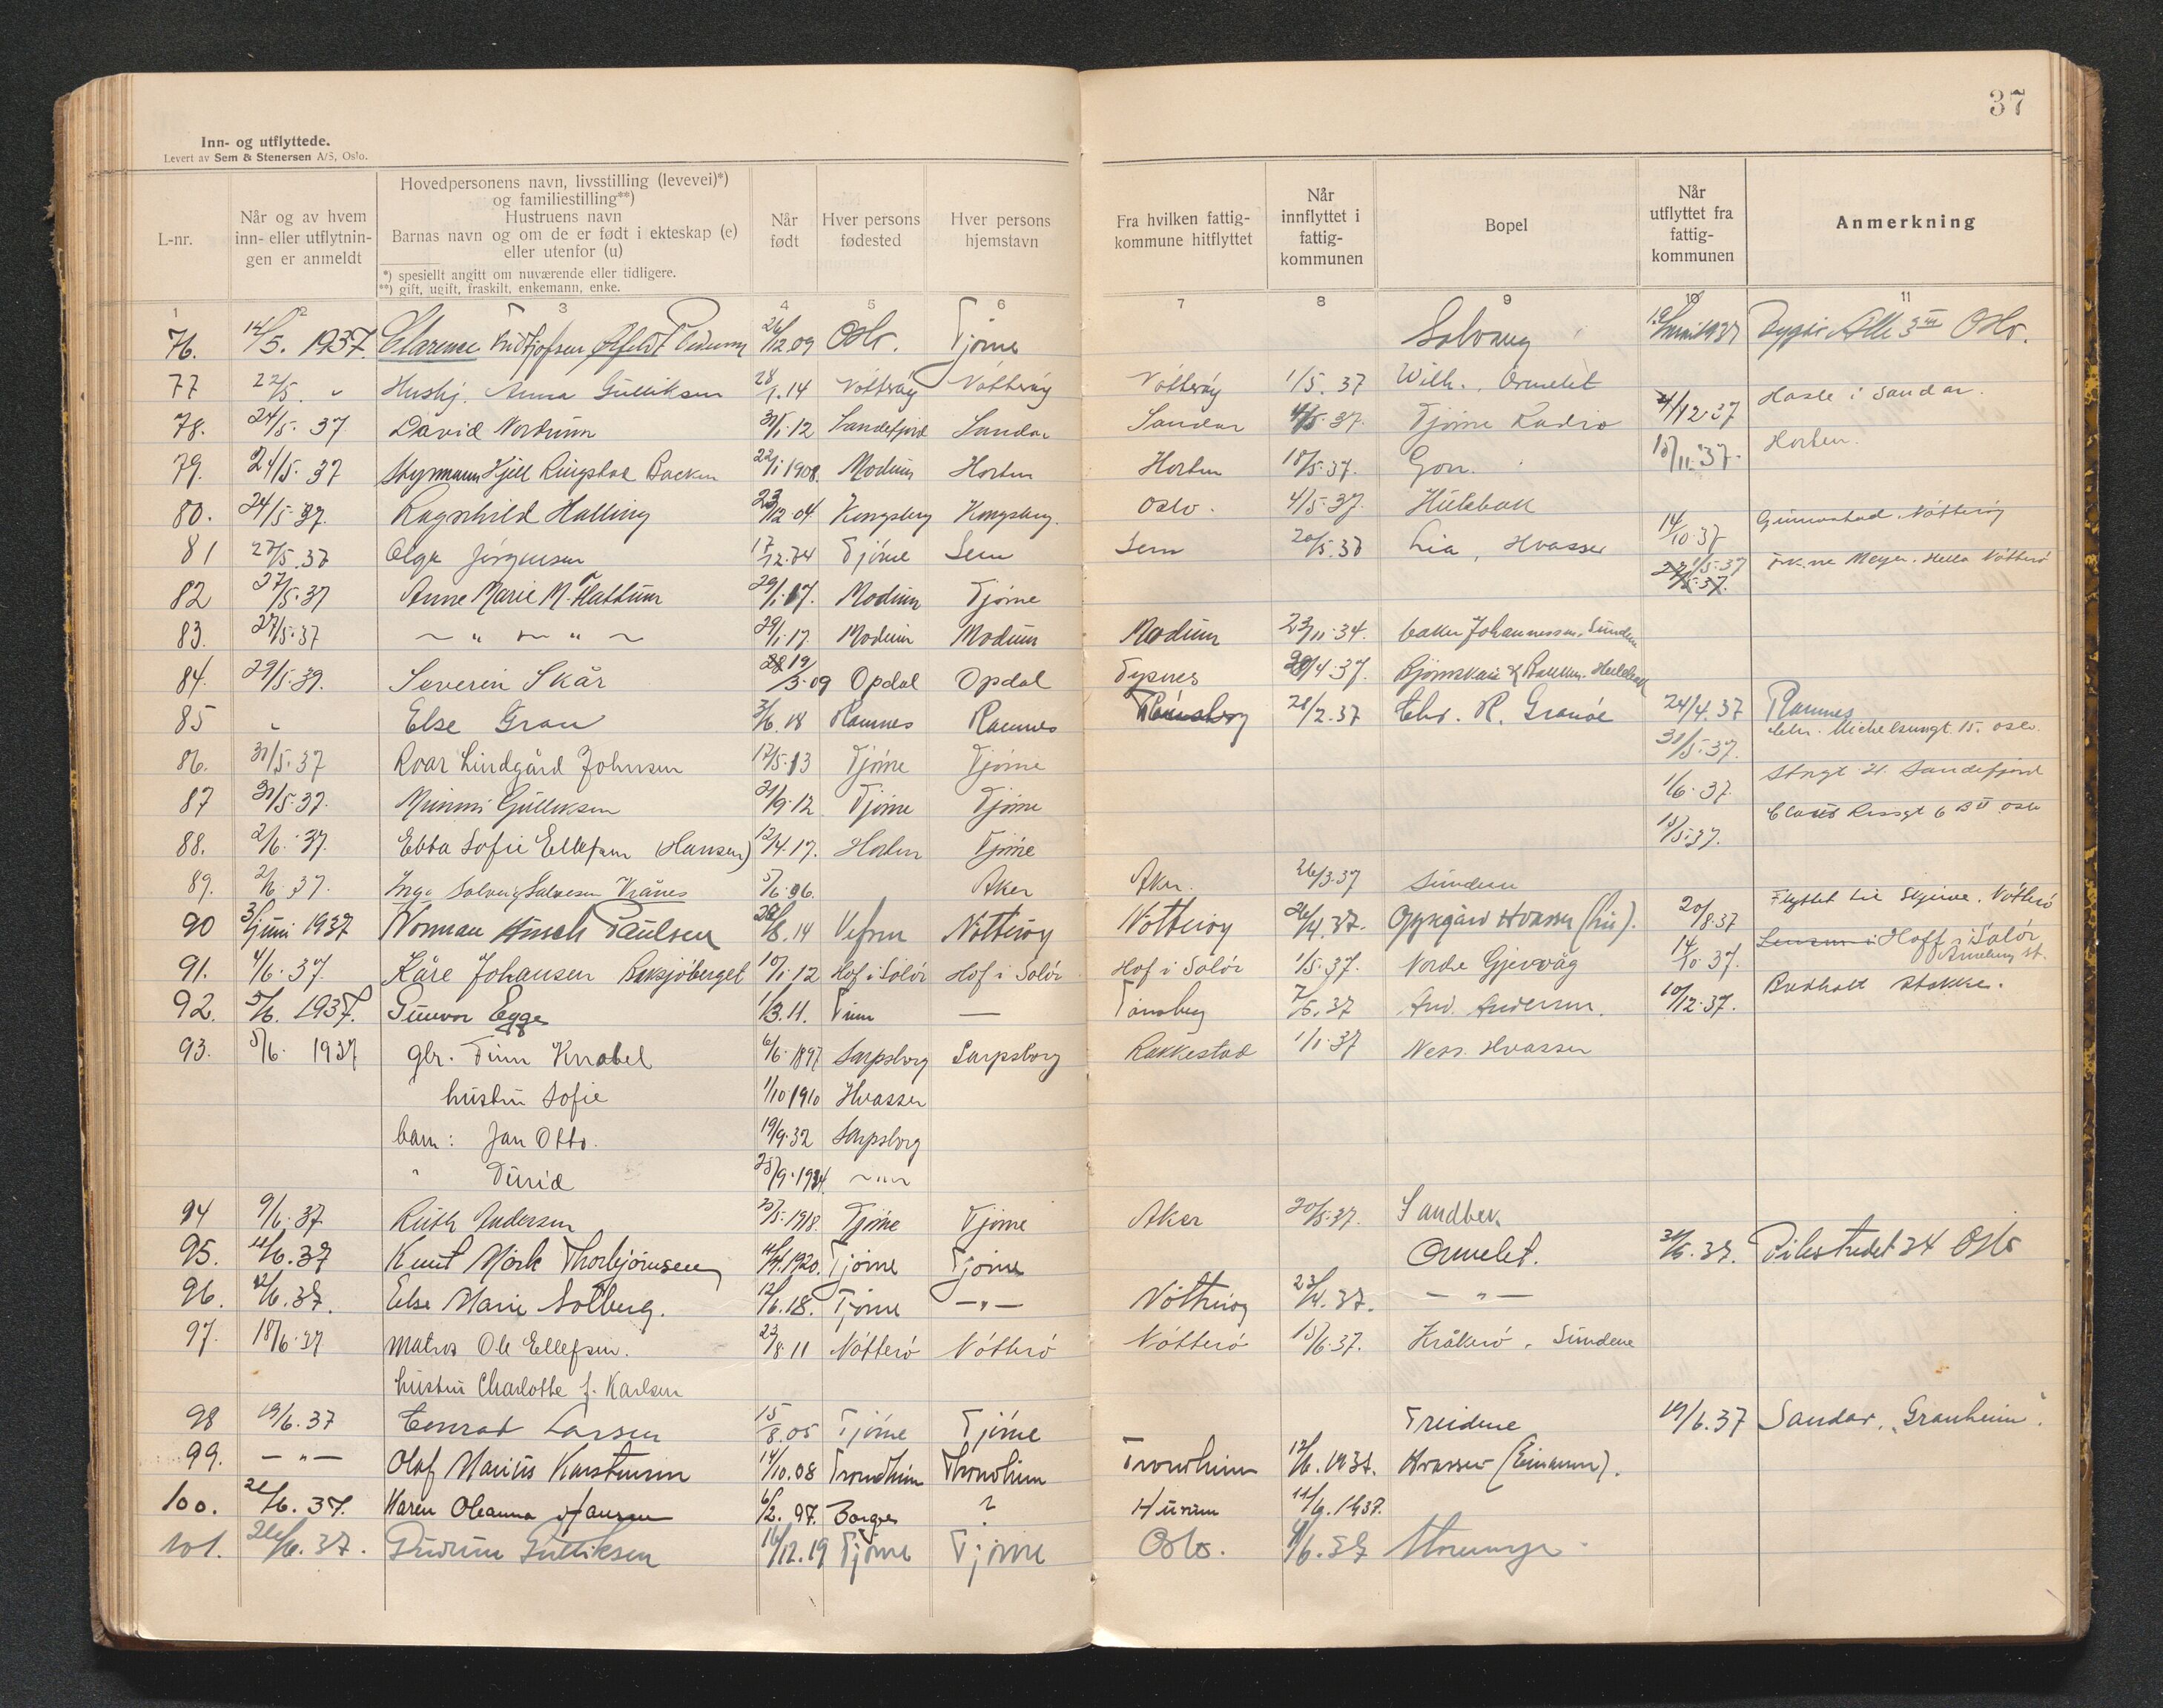 37
Inn- og utflyttede.
Levert av Sem & Stenersen A/S, Oslo.
L-nr.
Når og av hvem inn- eller utflytnin-gen er anmeldt
Hovedpersonens navn, livsstilling (levevei)*) og familiestilling**)
Hustruens navn
Barnas navn og om de er født i ekteskap (e) eller utenfor (u)
*) spesiellt angitt om nuværende eller tidligere.
**) gift, ugift, fraskilt, enkemann, enke.
Når født
Hver persons fødested
Hver persons hjemstavn
Fra hvilken fattig-kommune hitflyttet
Når innflyttet i fattig-kommunen
Bopel
Når utflyttet fra fattig-kommunen
Anmerkning
1 2 3 4 5 6 7 8 9 10 11
76. 14/5. 1937. Clarence 26/12.09 Oslo. Tjøme Solvang Oslo.
77 22/5. " Hushj. Anna Gulliksen 28/1.14 Nøtterøy Nøtterøy Nøtterøy 1/5.37 Wilh. Ormelet
78. 24/5.37 David Nordrum 31/1.12 Sandefjord Sandar Sandar 4/5.37. Tjøme Radio 4/12.37 Hasle i Sandar.
79. 24/5.37 Styrmann Kjell Ringstad Backer 22/1 1908. Modum Horten Horten 18/5.37. Gon. 15/11.37. Horten.
80. 24/5.37. Ragnhild Halling 23/12.04 Kongsberg Kongsberg. Oslo. 4/5.37. Hulebak
81 27/5.37 Olga Jørgensen 17/12.74 Tjøme Sem Sem 20/5.37 Lia, Hvasser 14/10.37 Grimestad, Nøtterøy
82 27/5.37 Anne Marie M. Hattum 29/1.17. Modum Tjøme 1/5.37 Meyer. Hella Nøtterø
83. 27/5.37 ~ " ~ " ~ 29/1.17. Modum Modum Modum 23/11.34. baker Johannessen, Sundene
84. 29/5.37. Severin Skår 19/3.09 Opdal Opdal Tysnes 28/4.37. Bjørnskau & Bakken. Hulebak
85 " Else Gran 3/6.18 Ramnes Ramnes Tønsberg 28/2.37 Chr. R. Granøe 24/4.37 Ramnes
86. 31/5.37 Roar Lindgård Johnsen 17/5.13 Tjøme Tjøme 31/5.37. Chr. Michelsensgt. 15. Oslo.
87 31/5.37. Mimmi Gulliksen 21/9.12 Tjøme Tjøme 1/6.37. Storgt. 21. Sandefjord
88. 2/6.37. Ebba Sofie Ellefsen (Hansen) 12/4.17. Horten Tjøme 15/5.37. 6 B II Oslo
89. 2/6.37. Inga Solveig Salvesen Vrånes 5/6.96. Aker Aker. 26/3.37 Sundene
90 3/juni 1937 Norman Paulsen 28/8.14 Vefsn Nøtterøy Nøtterøy 26/4.37. Oppegård Hvasser 20/8.37 Flyttet til Skjerve, Nøtterø
91. 4/6.37. Kåre Johansen Baksjøberget 10/1.12 Hof i Solør Hof i Solør Hof i Solør 1/5.37. Nordre Gjervåg 14/10.37. Hoff i Solør Arneberg st.
92. 5/6. 1937. Gunvor Egge 1/3.11. Tinn — Tønsberg 7/5.37 And. Andersen. 10/12.37. Bredholt Stokke.
93. 5/6. 1937 gbr. Finn Knabel 6/6.1897 Sarpsborg Sarpsborg Rakkestad 1/1.37 Ness. Hvasser
hustru Sofie 1/10 1910 Hvasser
barn: Jan Otto. 19/9.32 Sarpsborg
" Turid 25/9.1934. ~"~
94 9/6.37 Ruth Andersen 25/5.1918. Tjøme Tjøme Aker 20/5.37. Sandbek.
95. 11/6.37 Knut Mørk Thorbjørnsen 14/4.1920. Tjøme Tjøme Ormelet. 31/5.37. Pilestredet 34 Oslo
96. 12/6.37. Else Marie Solberg. 12/6.18. Tjøme —"— Nøtterøy 23/4.37. — " —
97. 18/6.37 Matros Ole Ellefsen. 23/8.11 Nøtterø Nøtterø Nøtterø 15/6.37. Kråkerø, Sundene
hustru Charlotte f. Karlsen
98 19/6.37 Conrad Larsen 15/8.05 Tjøme Tjøme Treidene 19/6.37 Sandar, "Granheim".
99. — " — Olaf Marius Karstensen 14/10.08 Trondheim Trondheim Trondheim 12/6.1937. Hvasser (Einarsen).
100. 21/6.37. Karen Oleanna Hansen 6/2.97. Borge ? Hurum 11/6.1937.
101. 26/6.37. Gudrun Gulliksen 16/12.19 Tjøme Tjøme Oslo. 9/6.37 Storemyr.